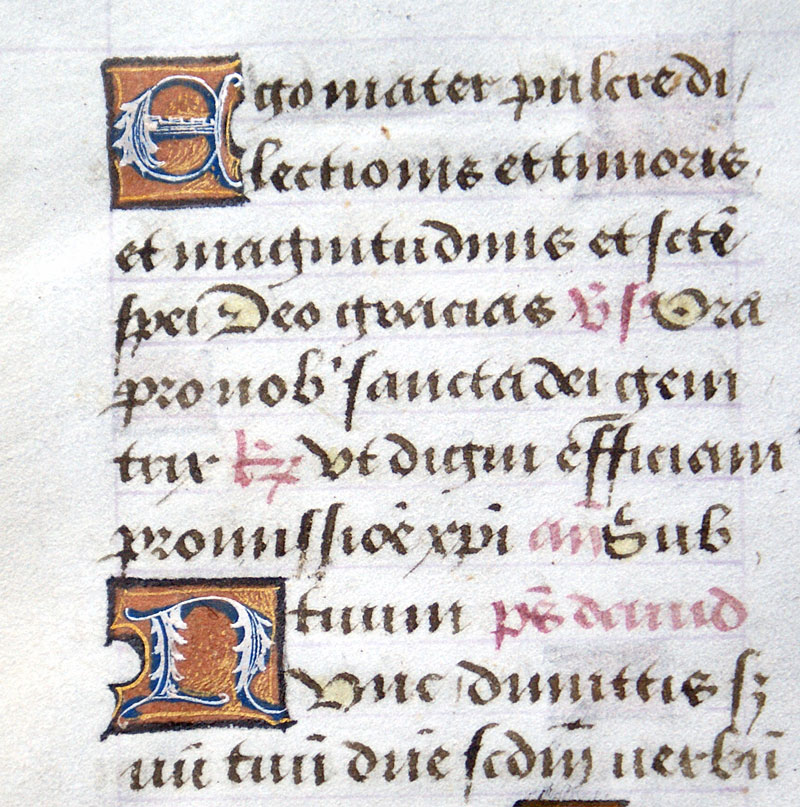 Ego mater pulcre di
lectionis et timoris.
et magnitudinis et scte͂
spei Deo gracias v̄s Ora
pro nob' sancta dei geni
trix R̄ Vt digni efficiam
promissiōe xp̄i an̄ Sub
tuum ps̄ dauid
Nunc dimittis sʒ
uū tuū dn̄e scdm̄ uerbū